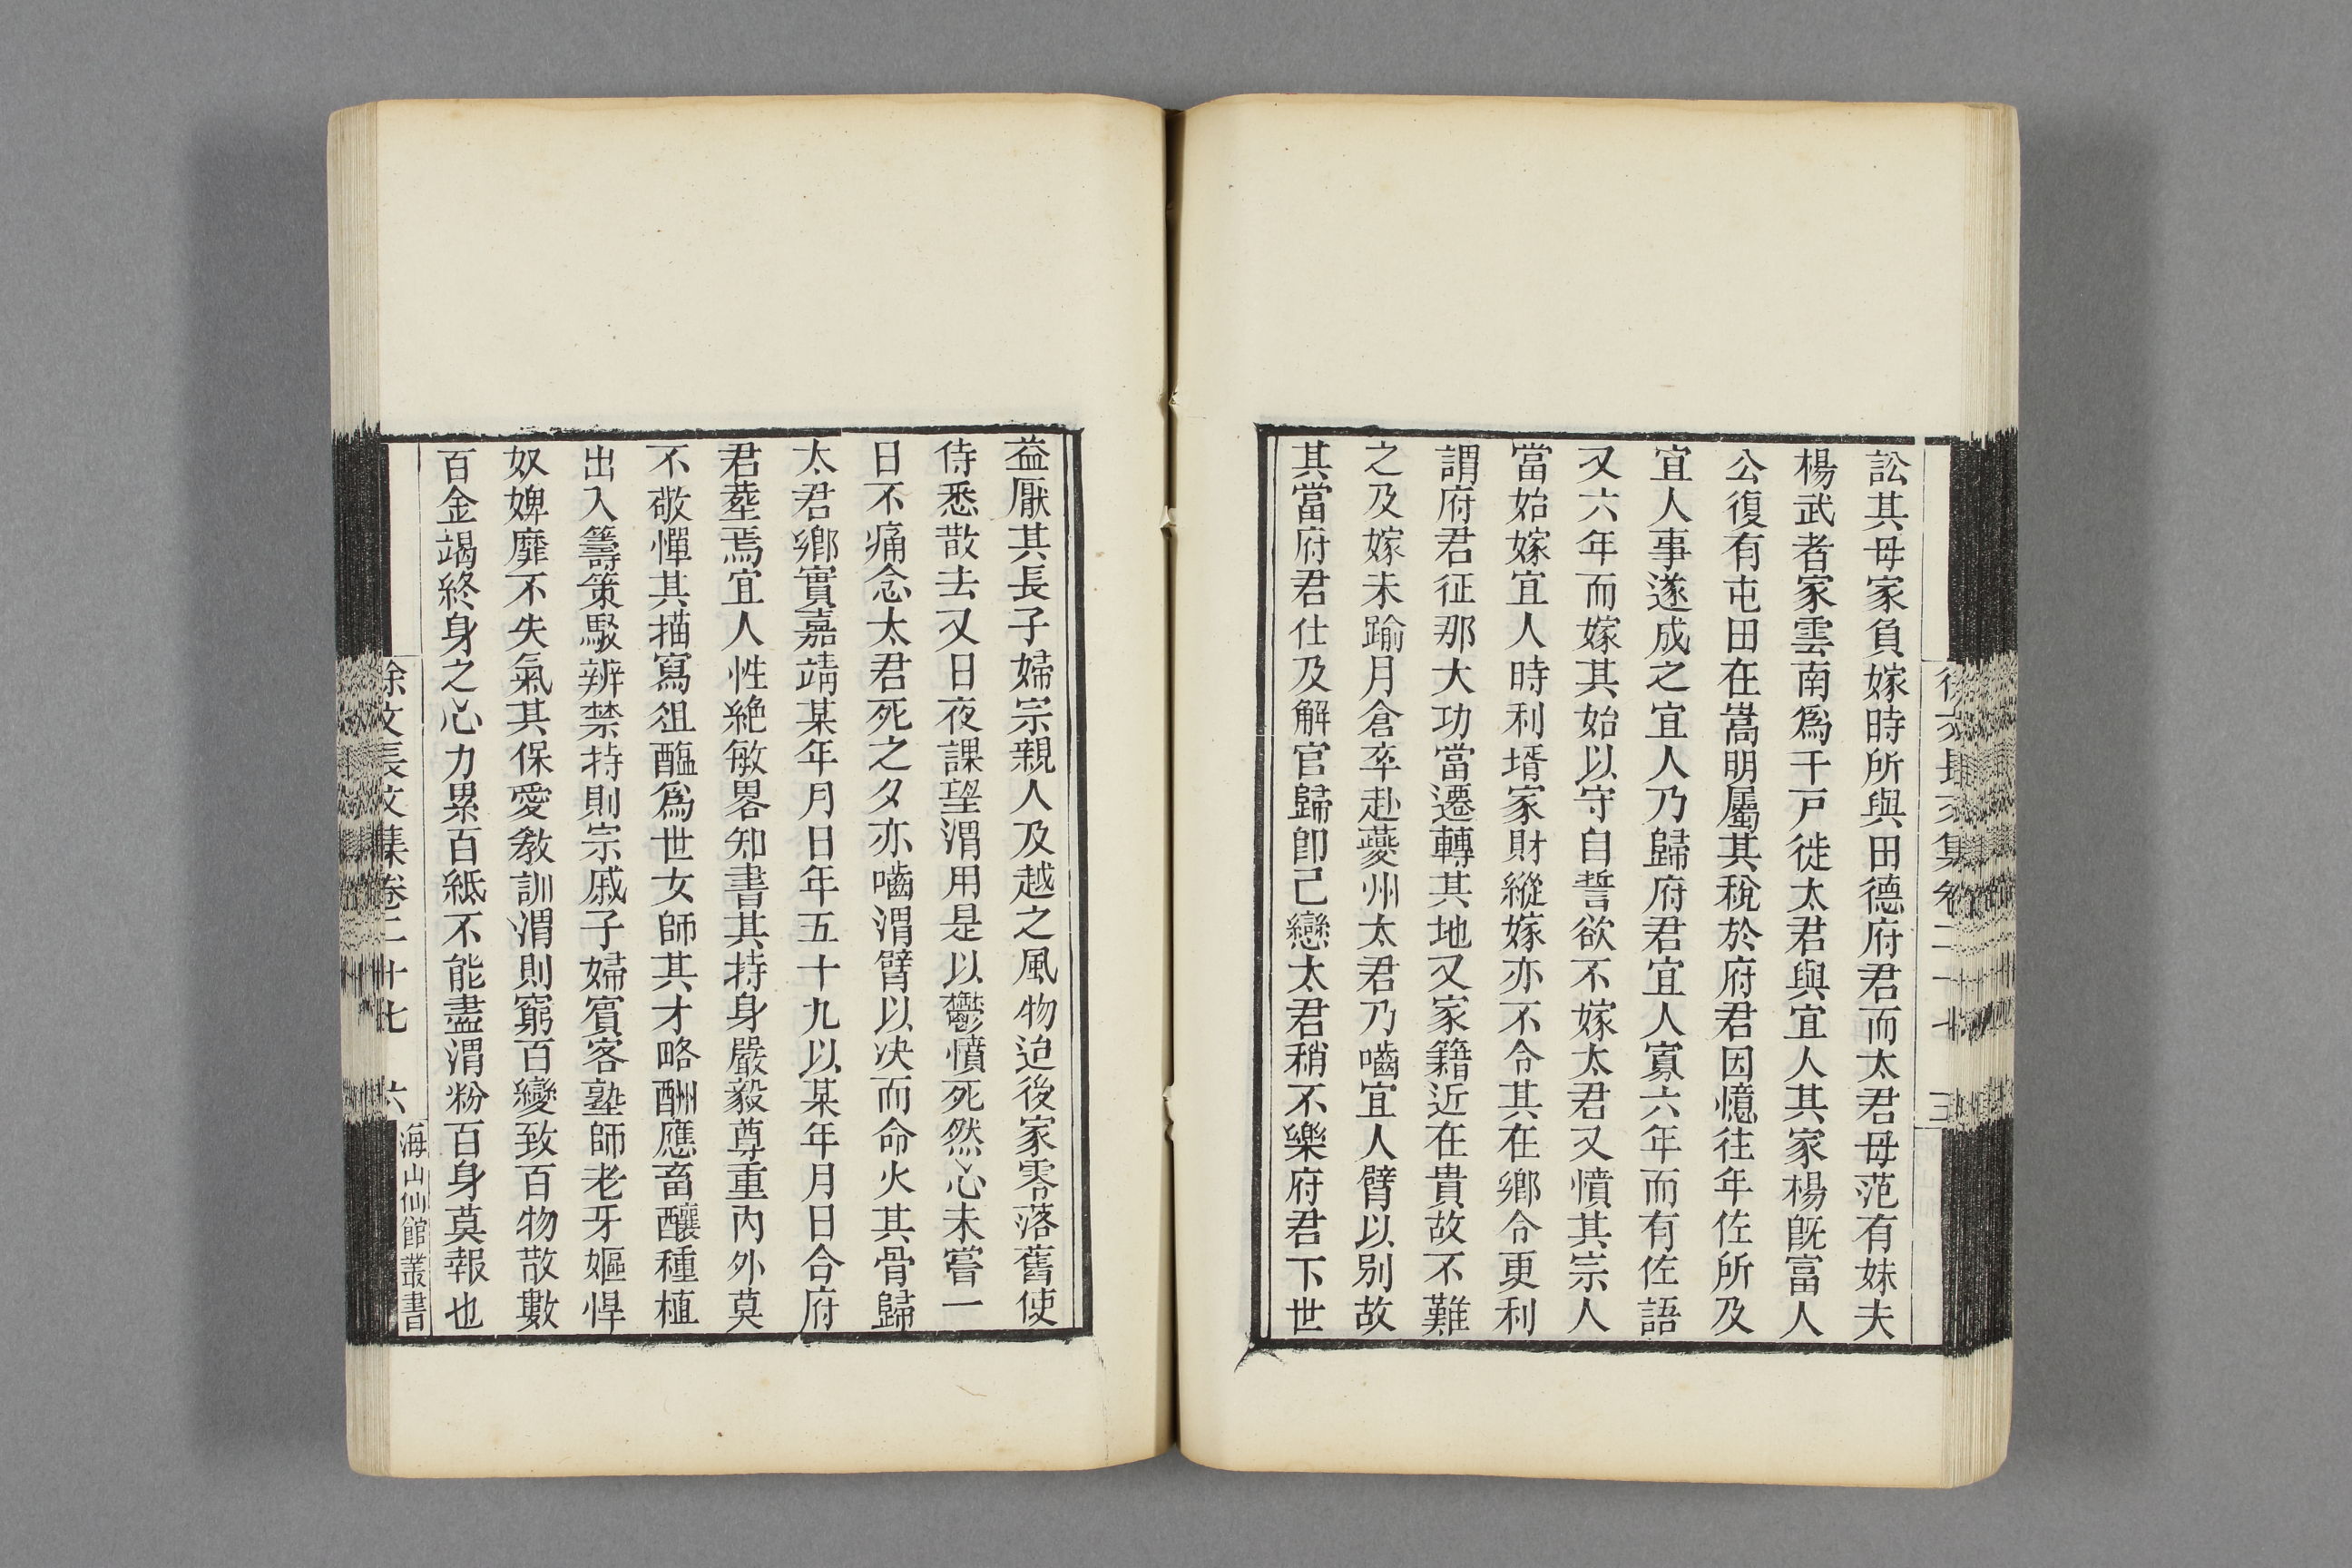 訟其母家負嫁時所與田德府君而太君母范有妹夫
楊武者家雲南爲千戸徙太君與宜人其家楊旣富人
公復有屯田在嵩明屬其稅於府君因憶往年佐所及
宜人事遂成之宜人乃歸府君宜人寡六年而有佐語
又六年而嫁其始以守自誓欲不嫁太君又憤其宗人
當始嫁宜人時利壻家財縱嫁亦不令其在鄉令更利
謂府君征那大功當遷轉其地又家籍近在貴故不難
之及嫁未踰月倉卒赴夔州太君乃嚙宜人臂以別故
其當府君仕及解官歸卽己戀太君稍不樂府君下世
益厭其長子婦宗親人及越之風物迨後家零落舊使
侍悉散去又日夜課望渭用是以鬱憤死然心未嘗一
日不痛念太君死之夕亦嚙渭臂以决而命火其骨歸
太君鄉實嘉靖某年月日年五十九以某年月日合府
君塟焉宜人性絶敏畧知書其持身嚴毅尊重內外莫
不敬憚其描寫俎醢爲世女師其才略酬應畜釀種植
出入籌策駁辨禁持則宗戚子婦賓客塾師老牙嫗悍
奴婢靡不失氣其保愛敎訓渭則窮百變致百物散數
百金竭終身之心力累百紙不能盡渭粉百身莫報也
徐文長文集卷二十七 六
海山仙館叢書